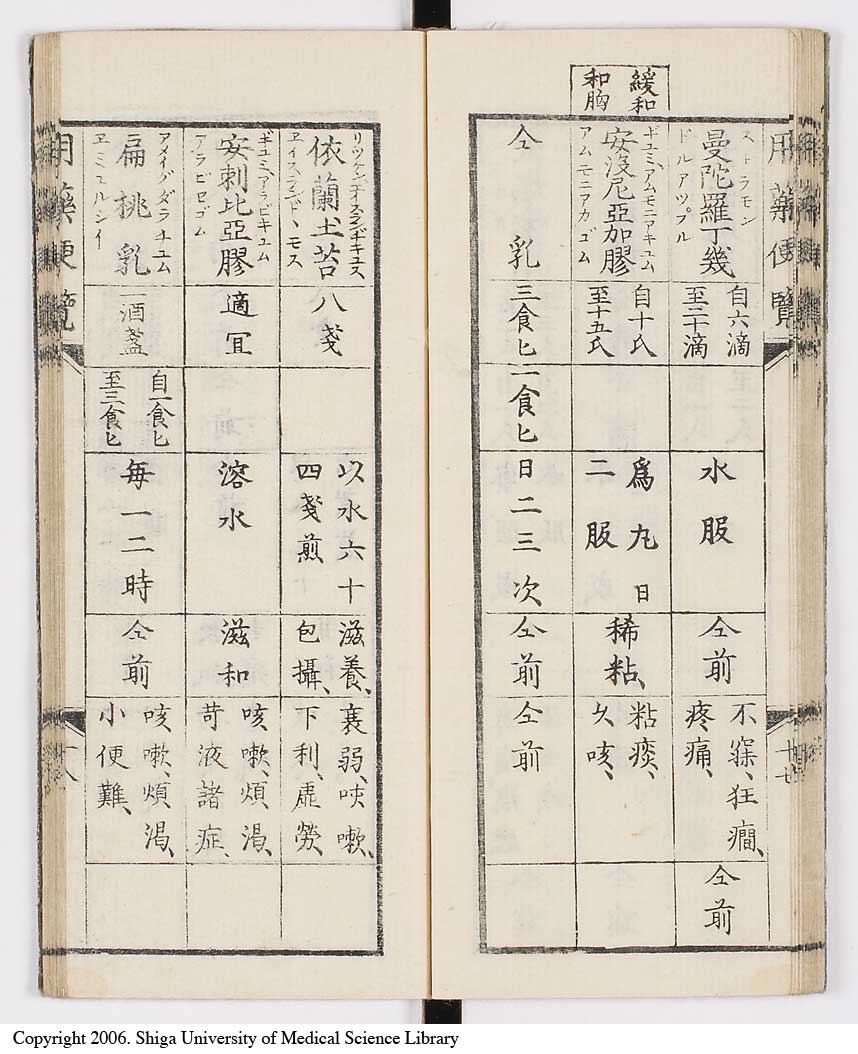 用藥便覽
十七
緩和
和胸
ストラモン
曼陀羅丁幾
ドルアツプル
自六滴
至二十滴
水服
仝前
不寐、狂癇、
疼痛、
仝前
ギュミ、アムモニアキュム
安没尼亞加膠
アムモニアカゴム
自十氏
至十五氏
爲丸日
二服
稀粘、
粘痰、
久咳、
仝乳
三食匕
一食匕
日二三次
仝前
仝前
依蘭土苔
ヱイスランドヽモス
八戔
以水六十
四戔煎
滋養、
包攝、
衰弱、咳嗽、
下利、虛勞、
ギュミ、アラビキュム
安刺比亞膠
アラビヤゴム
適宜
溶水
滋和
咳嗽、煩渴、
苛液諸症、
アメイグダラチユム
扁桃乳
ヱミユルシイ
一酒盞
自一食匕
至三食匕
每一二時
仝前
咳嗽、煩渴、
小便難、
用藥便覽
十八
Copyright 2006. Shiga University of Medical Science Library